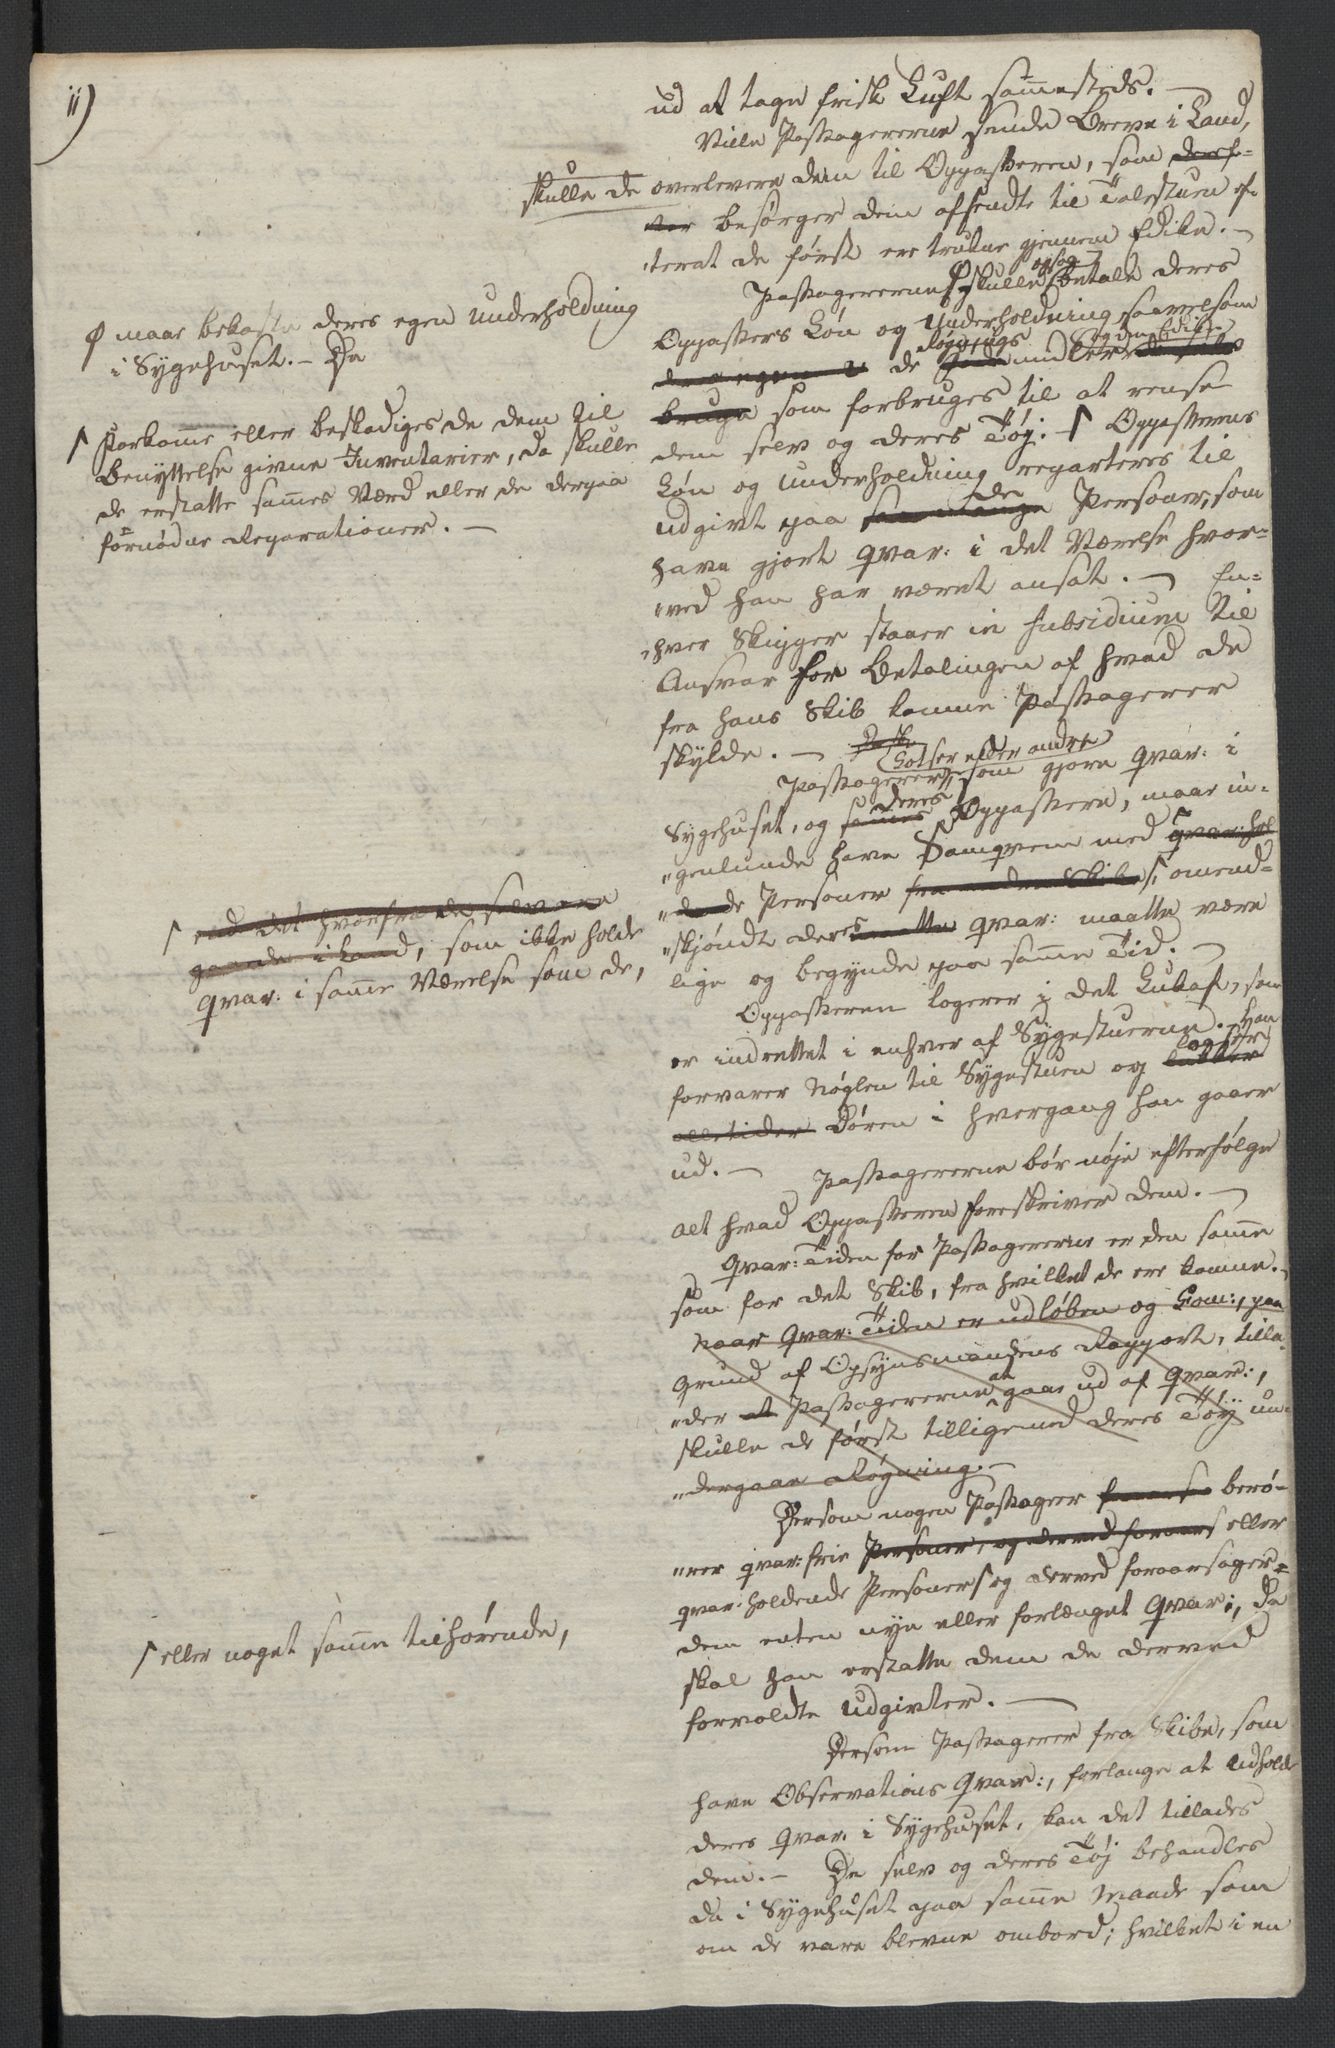 11)
ud at tage frisk Luft sammesteds. —
Ville Passagererne sende Breve i Land,
skulle de overlevere dem til Oppasseren, som deref-
ter besørger dem afsendte til Talestuen ef-
terat de først ere trukne gjennem Edike. —
Passagererne ϕ skulle ogsaa betale deres
Oppassers Løn og Underholdning saavelsom
de Røgnings og den Edike
bruge som forbruges til at rense
dem selv og deres Tøj. ſ Oppasserens
Løn og Underholdning reparteres til
Udgivt paa saa mange de Personer, som
have gjort qvar: i det Værelse hvor-
ved han har været ansat. — En-
hver Skipper staaer in Subsidium til
Ansvar for Betalingen af hvad de
fra hans Skib komne Passagerer
skylde. —
Lodser eller andre
Passagerer, som gjøre qvar: i
Sygehuset, og sammes deres Oppassere, maae in-
genlunde have Samqvem med qvar: hol-
dende Personer fra andre Skibe ſ, omend-
skjøndt deres maatte qvar: maatte være
lige og begynde paa samme Tid. —
Oppasseren logerer i det Lukaf, som
er indrettet i enhver af Sygestuerne. Han
forvarer Nøglen til Sygestuen og lukker
alletider Døren i hvergang han gaaer
ud. — Passagererne bør nøje efterfølge
alt hvad Oppasseren foreskriver dem. —
Qvar: Tiden for Passagererne er den samme
som for det Skib, fra hvilket de ere komne. —
Naar Qvar: Tiden er udløben og Com:, paa
Grund af Opsynsmandens Rapport, tilla-
der at Passagererne at gaae ud af Qvar:,
skulle de først tilligemed deres Tøÿ un-
dergaae Røgning. —
Dersom nogen Passager berø-
rer qvar: frie Personer, og derved foraars eller
qvar: holdende Personer ſ og derved foraarsager
dem enten nye eller forlænget Qvar:, da
skal han erstatte dem de derved
forvoldte Udgivter. —
Dersom Passagerer fra Skibe, som
have Observations Qvar:, forlange at udholde
deres Qvar. i Sygehuset, kan det tillades
dem. — De selv og deres Tøj behandles
da i Sygehuset paa samme Maade som
om de vare blevne ombord; hvilket i en
ϕ maae bekoste deres egen Underholdning
i Sygehuset. — De
ſ Forkomme eller beskadiges de dem til
Benyttelse givne Inventarier, da skulle
de erstatte sammes Værd eller de derpaa
fornødne Reparationer. —
ſ end det hvorfra de selv ere
gaaede i Land, som ikke holde
Qvar: i samme Værelse som de,
ſ eller noget samme tilhørende,